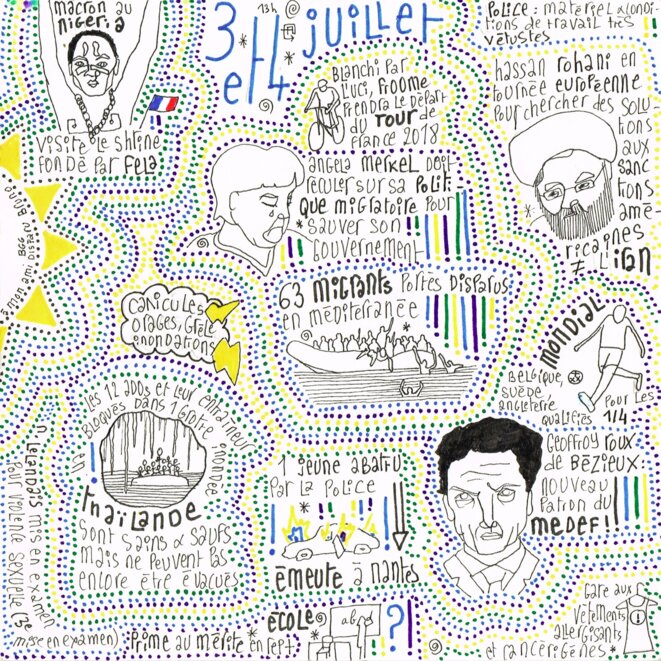 macron au
nigeria
visite le Shrine
fondé par Fela
13h
3 et 4
juillet
POLICE : matériel & condi-
tions de travail très
vétustes
Blanchi par
l'uci, Froome
prendra le départ
du Tour de
France 2018
hassan rohani en
tournée européenne
pour chercher des solu-
tions
aux
sanc
tions
amé-
ricaines
↗ l'iran
angela merkel doit
reculer sur sa politi-
que migratoire pour
* sauver son
gouvernement
à mon ami disparu Bruno
canicules
orages, grêle
inondations
63 migrants portés disparus
en méditerranée *
mondial
Belgique,
suède,
angleterre
qualifiés
pour les
1/4
Les 12 ados et leur entraîneur
bloqués dans 1 grotte inondée
en
Thaïlande
sont sains & saufs
mais ne peuvent pas
encore être évacués
1 jeune abattu
par la police
émeute à nantes
Geoffroy Roux
de Bézieux:
nouveau
patron du
MEDEF!!
n Lelandais mis en examen
pour violence sexuelle (3e
mise en examen)
école
abc
?
* Prime au mérite * en sept.
Gare aux
vêtements
allergisants
et cancérigènes *